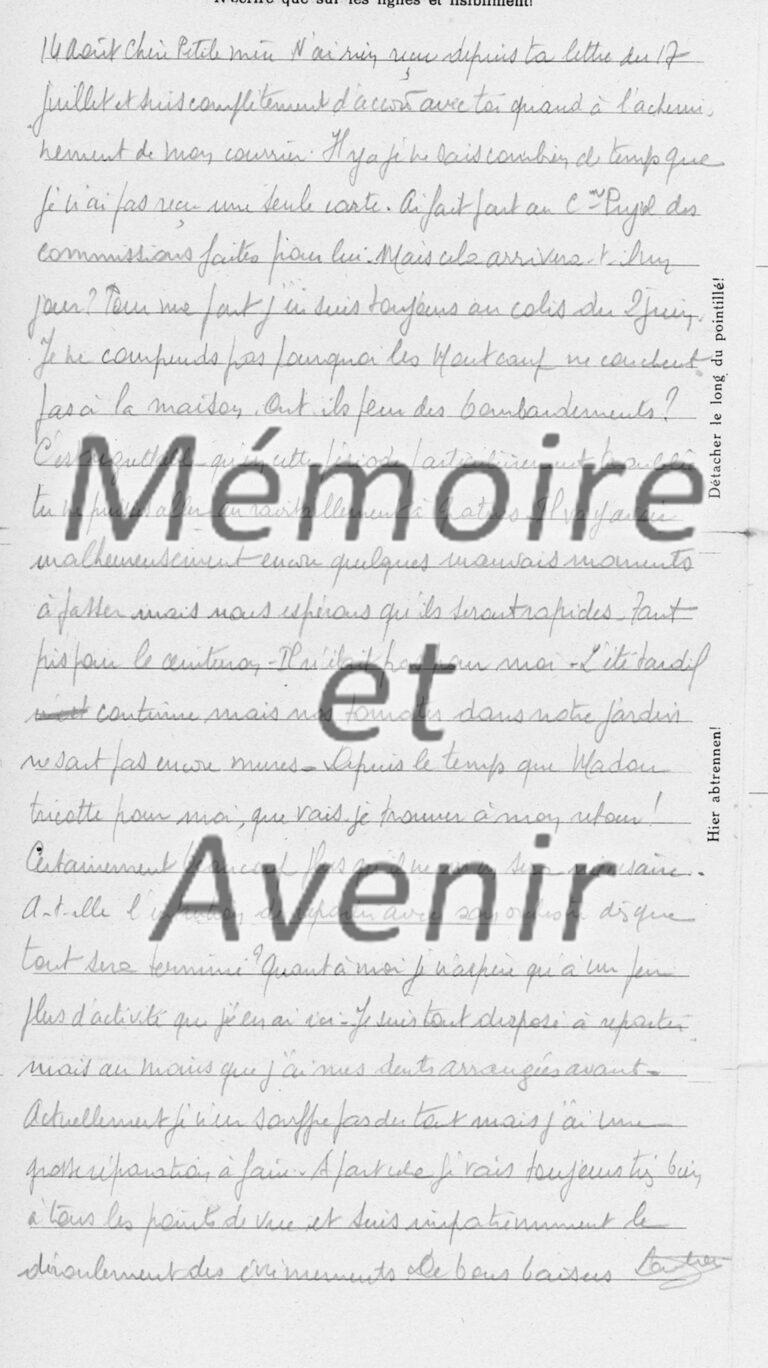 N'écrire que sur les lignes et lisiblment!
14 août Chère Petite mère N'ai rien reçu depuis ta lettre du 17
juillet et suis complètement d'accord avec toi quand à l'achemi-
nement de mon courrier. Il y a je ne sais combien de temps que
je n'ai pas reçu une seule carte. Ai fait part au Cne Pujol des
commissions faites pour lui. Mais cela arrivera-t-il un
jour? Pour ma part j'en suis toujours au colis du 2 juin.
Je ne comprends pas pourquoi les ne couchent
pas à la maison. Ont-ils peur des bombardements?
C'est qu'en cette période particulièrement
tu ne puisses aller au ravitaillement à Il va y avoir
malheureusement encore quelques mauvais moments
à passer mais nous espérons qu'ils seront rapides. Tant
pis pour le ceinturon - Il n'était pas pour moi - L'été tardif
continue mais nos tomates dans notre jardin
ne sont pas encore mures - Depuis le temps que Madou
tricotte pour moi, que vais-je trouver à mon retour!
Certainement beaucoup plus qu'il ne me sera nécessaire.
A-t-elle l'intention de repartir avec son dès que
tout sera terminé? Quant à moi je n'aspire qu'à un peu
plus d'activité que j'en ai ici - Je suis tout disposé à repartir
mais au moins que j'ai mes dents arrangées avant -
Actuellement je n'en souffre pas du tout mais j'ai une
grosse réparation à faire. A part cela je vais toujours très bien
à tous les points de vue et suis impatiemment le
déroulement des évènements De bons baisers
Détacher le long du pointillé!
Hier abtrennen!
Mémoire
et
Avenir